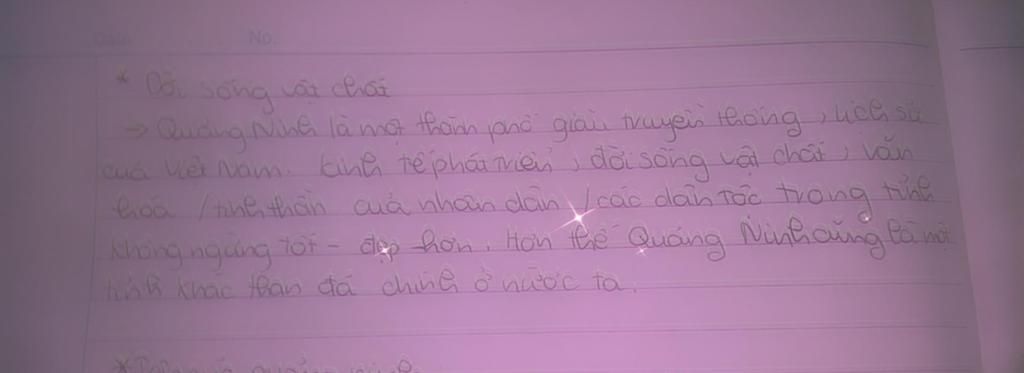 Date No.
* Đời sống vật chất
→ Quảng Ninh là một thành phố giàu truyền thống, lịch sử
của Việt Nam. kinh tế phát triển, đời sống vật chất, văn
hóa / tinh thần của nhân dân / các dân tộc trong tỉnh
không ngừng tốt - đẹp hơn. Hơn thế Quảng Ninh cũng là một
tỉnh khác than đá chính ở nước ta.